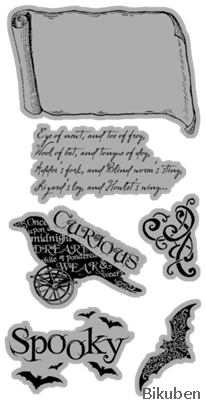 Eye of newt, and toe of frog,
Wool of bat, and tongue of dog,
Adder's fork, and Blind worm's sting,
Lizard's leg, and Howlet's wing...
CURIOUS
Once
upon
midnight
DREARY
while
pondered
WEAK &
wear
Spooky
Bikuben